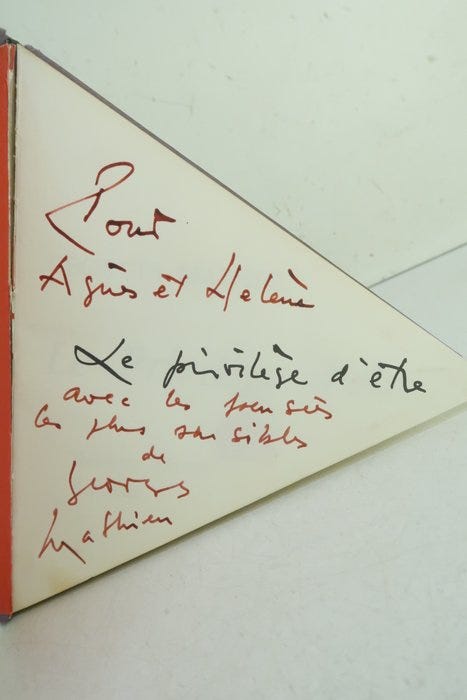 Pour
Agnès et Helène
Le privilège d'être
avec les pensées
les plus sensibles
de
Georges
Mathieu